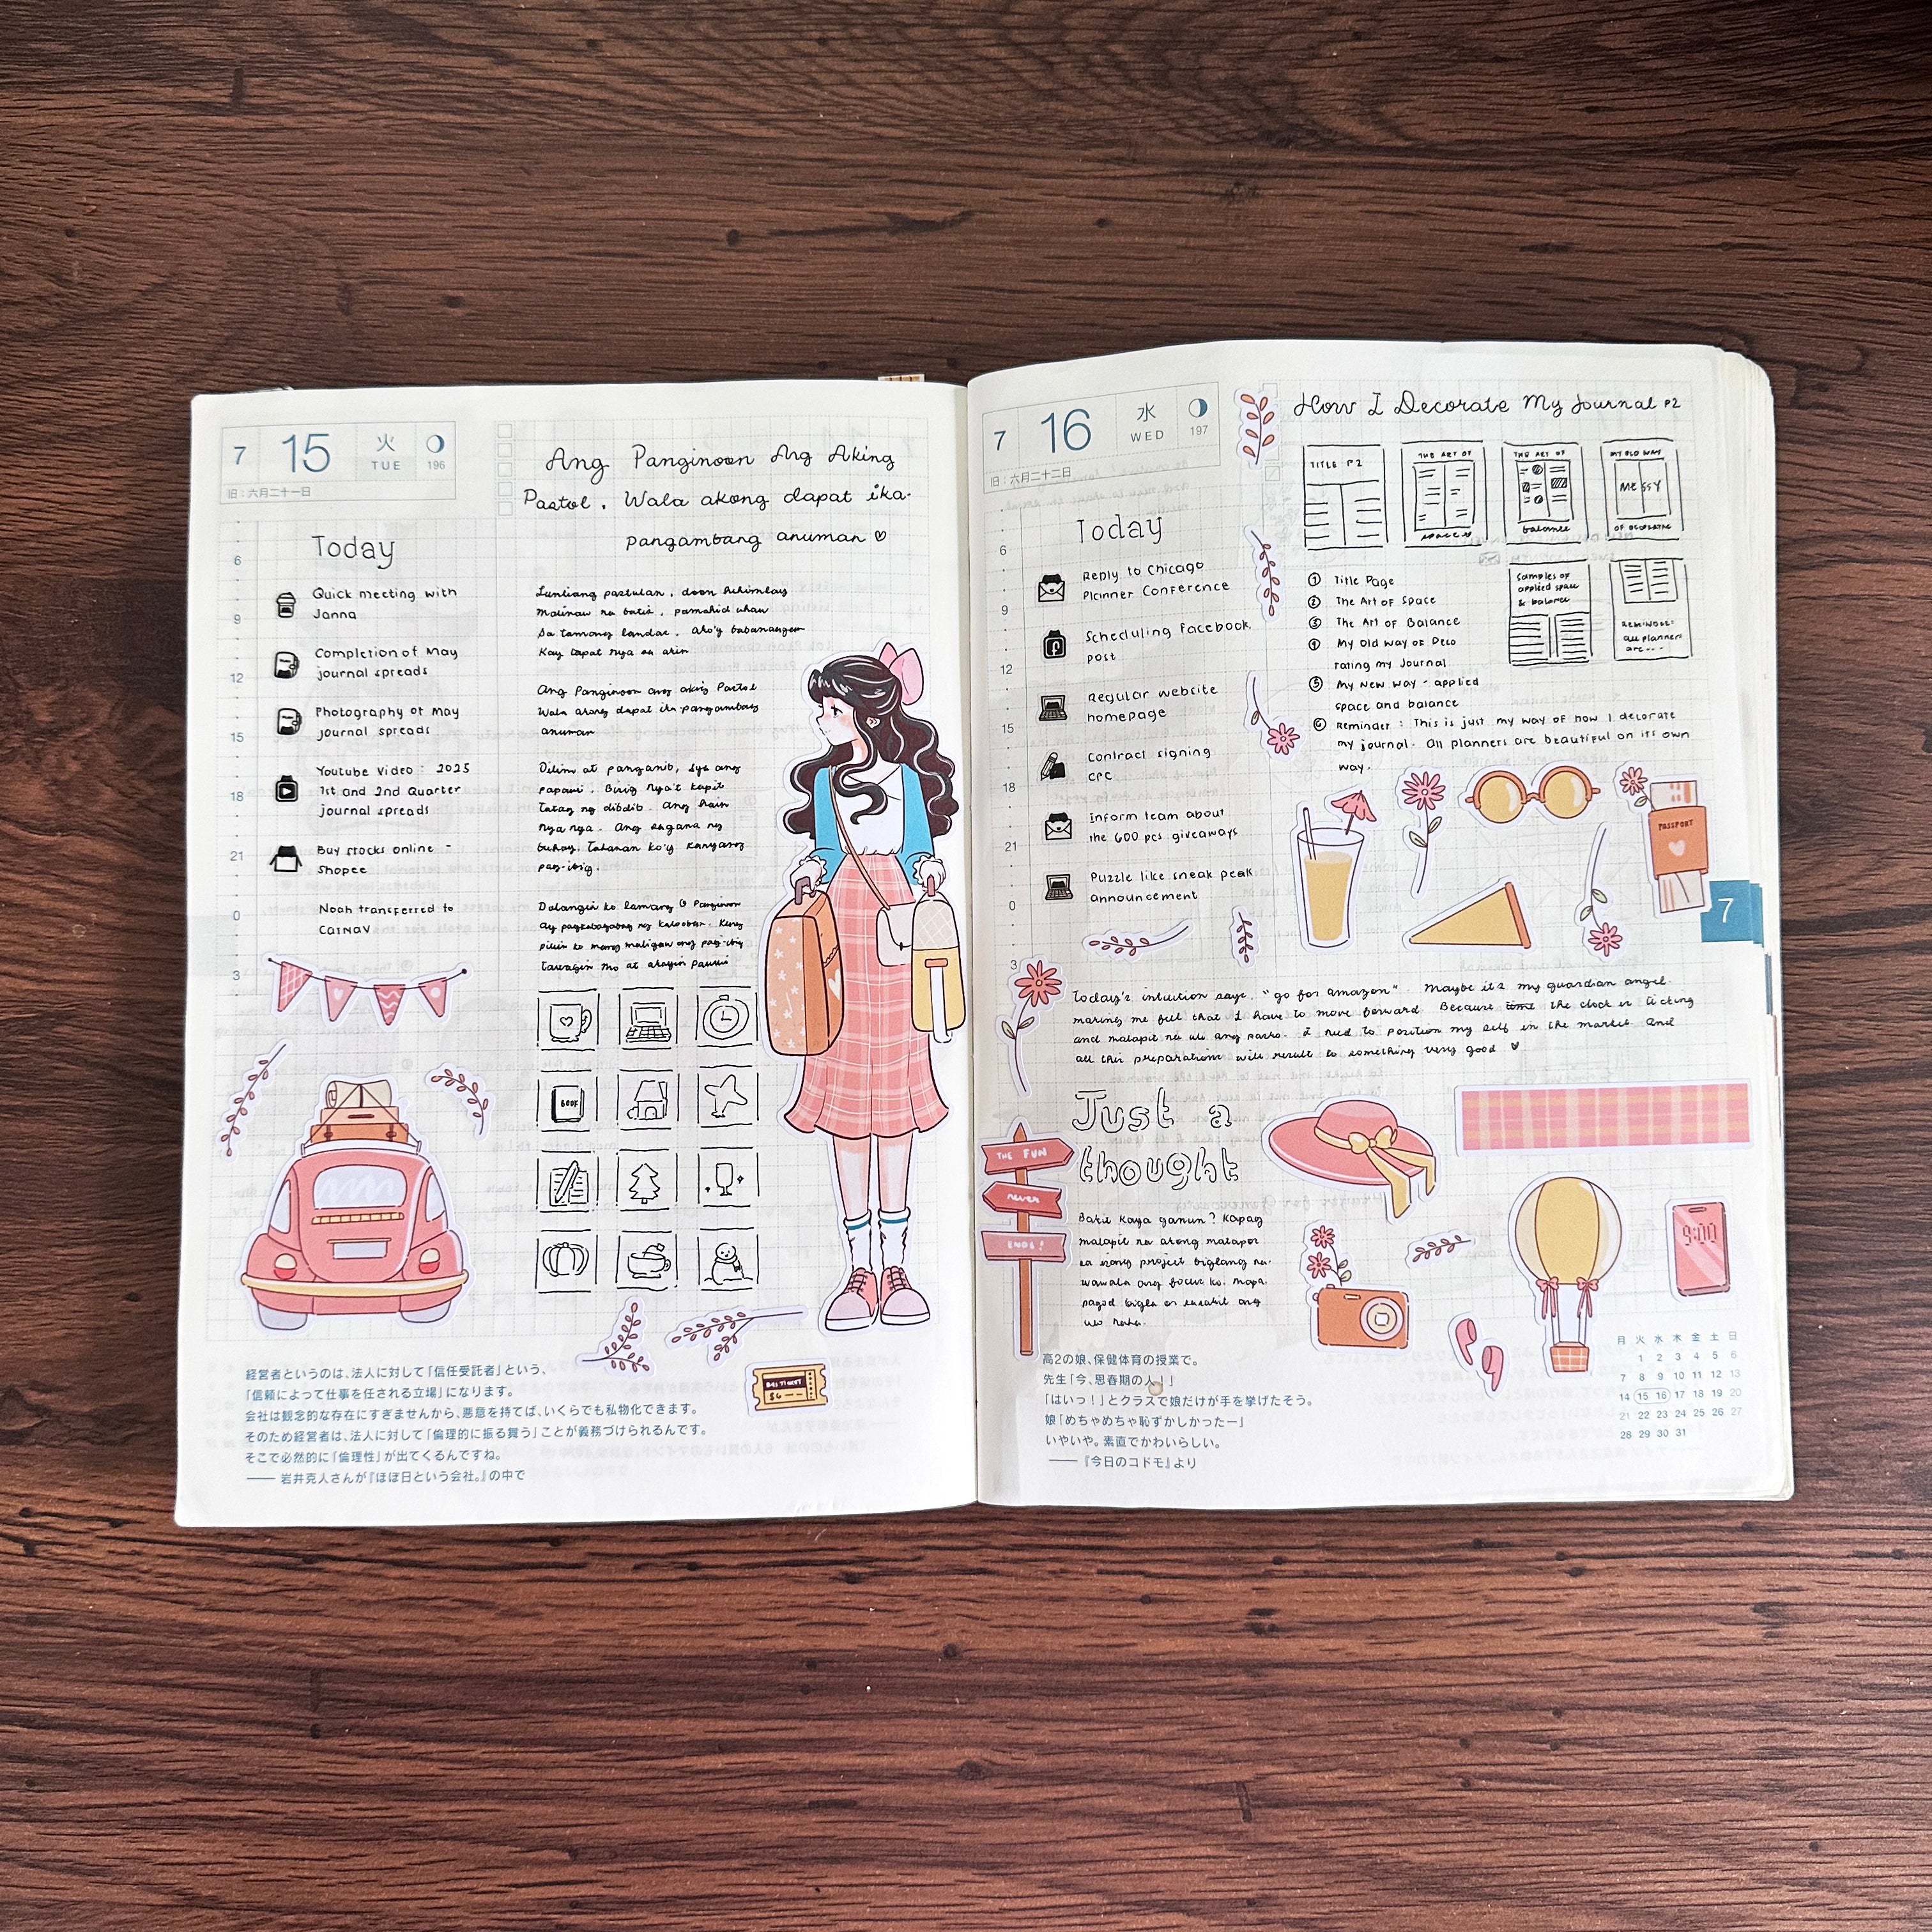 7 15 火 TUE 196
旧:六月二十一日
6
9
12
15
18
21
0
3
Today
Quick meeting with
Janna
Completion of May
journal spreads
Photography of May
journal spreads
Youtube Video : 2025
1st and 2nd Quarter
journal spreads
Buy stocks online -
Shopee
Noah transferred to
CATNAV
Ang Panginoon Ang Aking
Pastol. Wala akong dapat ika-
pangambang anuman
Luntiang pastulan, doon hihimlay
Malinaw na batis, pamahid uhaw
Sa tamang landas, ako'y babanangan
Kay tapat nya sa akin
Ang Panginoon ang aking Pastol
Wala akong dapat ika pangambang
anuman
Dilim at panganib, sya ang
papawi. Bisig nya't kapit
tatag ng dibdib. Ang hain
nya nga. Ang sagana ng
buhay. Tahanan ko'y kanyang
pag-ibig.
Dalangin ko lamang O Panginoon
ay pagkabagabag ng kalooban. Kung
piliin ko mang maligaw ang pag-ibig
tawagin mo at akayin pauwi
BOOK
BUS TICKET
$6
経営者というのは、法人に対して「信任受託者」という、
「信頼によって仕事を任される立場」になります。
会社は観念的な存在にすぎませんから、悪意を持てば、いくらでも私物化できます。
そのため経営者は、法人に対して「倫理的に振る舞う」ことが義務づけられるんです。
そこで必然的に「倫理性」が出てくるんですね。
—— 岩井克人さんが『ほぼ日という会社。』の中で
7 16 水 WED 197
旧:六月二十二日
6
9
12
15
18
21
0
3
Today
Reply to Chicago
Planner Conference
Scheduling Facebook
post
Regular website
homepage
Contract signing
CPC
Inform team about
the 600 pcs giveaways
Puzzle like sneak peak
announcement
How I Decorate My Journal P2
TITLE P2
THE ART OF
space
THE ART OF
balance
MY OLD WAY
MESSY
OF DECORATING
Samples of
applied space
& balance
REMINDER:
all planners
are ---
① Title Page
② The Art of Space
③ The Art of Balance
④ My Old Way of Deco
rating my Journal
⑤ My New Way - applied
space and balance
⑥ Reminder : This is just my way of how I decorate
my journal. All planners are beautiful on its own
way.
PASSPORT
7
Today's intuition says, "go for amazon". Maybe its my guardian angel
making me feel that I have to move forward. Because time the clock is ticking
and malapit na uli ang pasko. I need to position my self in the market and
all this preparations will result to something very good
Just a
thought
THE FUN
never
ENDS!
Bakit kaya ganun? Kapag
malapit na akong matapos
sa isang project biglang na-
wawala ang focus ko. Mapa
pagod bigla or sasakit ang
ulo haha.
9:00
高2の娘、保健体育の授業で。
先生「今、思春期の人!」
「はいっ!」とクラスで娘だけが手を挙げたそう。
娘「めちゃめちゃ恥ずかしかったー」
いやいや。素直でかわいらしい。
—— 『今日のコドモ』より
月 火 水 木 金 土 日
1 2 3 4 5 6
7 8 9 10 11 12 13
14 15 16 17 18 19 20
21 22 23 24 25 26 27
28 29 30 31